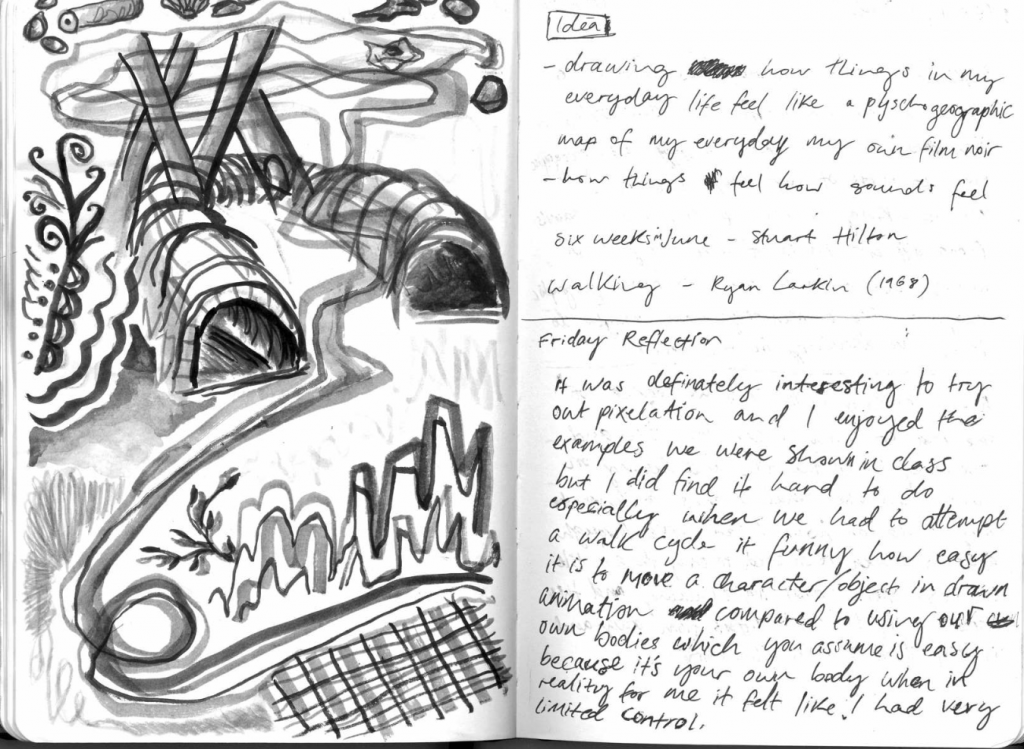 Idea
- drawing how things in my
everyday life feel like a pyschogeographic
map of my everyday, my own film noir
- how things feel how sounds feel
six weeks in June - Stuart Hilton
Walking - Ryan Larkin (1968)
Friday Reflection
it was definately interesting to try
out pixelation and I enjoyed the
examples we were shown in class
but I did find it hard to do
especially when we had to attempt
a walk cycle it funny how easy
it is to move a character/object in drawn
animation compared to using our
own bodies which you assume is easy
because it's your own body when in
reality for me it felt like I had very
limited control.